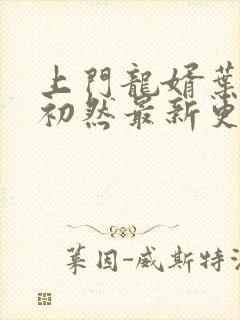 上門龍婿葉
初然最新更
葉因-威斯特法